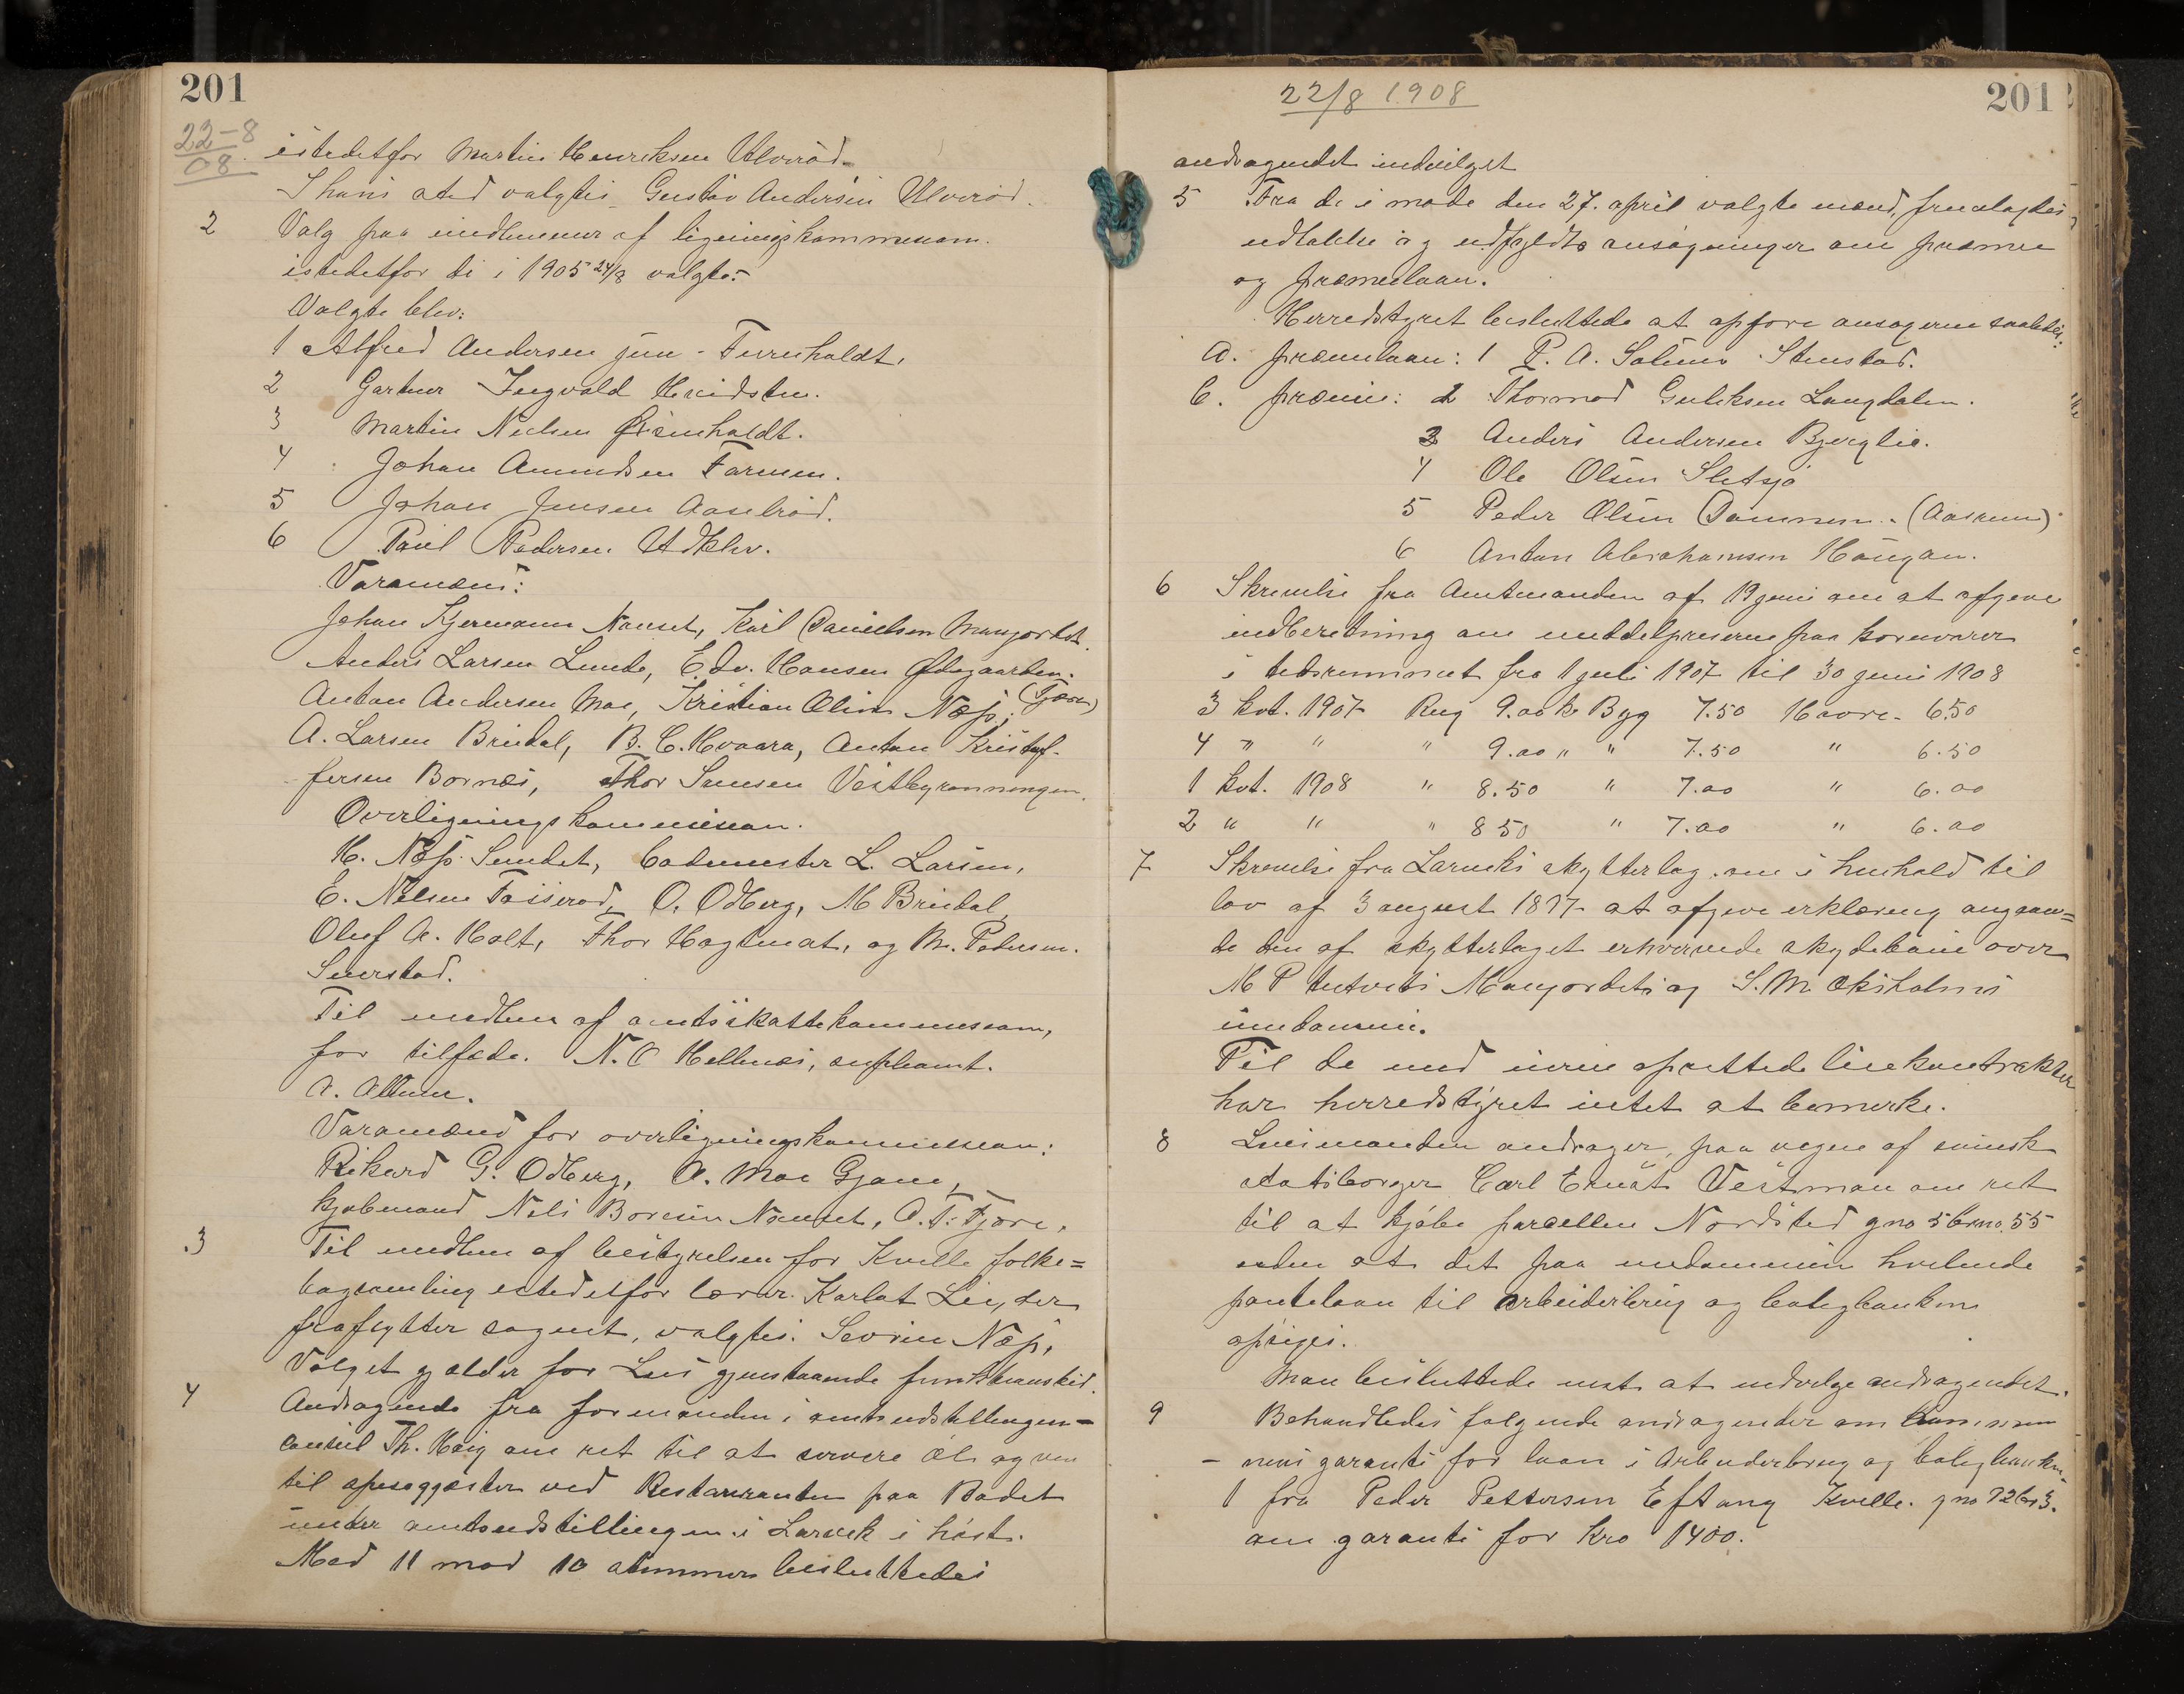 201
22-8
08
istedetfor Martin Henriksen Ulverød.
I hans sted valgtes Gustav Andersen Ulverød.
2 Valg paa medlemmer af ligningskommission.
istedetfor de i 1905 24/8 valgte:
Valgte blev:
1 Alfred Andersen jun - Furuholdt.
2 Gartner Ingvald Hvidsten.
3 Martin Nielsen
4 Johan Amundsen Farmen.
5 Johan Jensen
6 Paul Pedersen Udklev.
Varamænd:
Johan Kjermann Nanset, Karl Danielsen Manjordet.
Anders Larsen Lunde, Edv. Hansen Ødegaarden.
(Tjøre)
Anton Andersen Moe, Kristian Olsen Næss,
A. Larsen Bredal, B. C. Hvaara, Anton Kristof-
fersen Bornes, Thor Simsen
Overligningskommission.
H. Næss Sundet, bademester L. Larsen,
E. Nilsen Fosserød, O. Odberg, M Bredal,
Oluf A. Holt, Thor Hagtmat, og M. Pedersen.
Seierstad.
Til medlem af amtsskattekommission,
for tilfæde. N. O Hellenes, supleant.
A. Allum.
Varamænd for overligningskommission:
Rikard G. Odberg, A. Moe Gjone,
kjøbmand Nils Boresen Nanset, A. T. Tjøre.
3 Til medlem af bestyrelsen for Kvelle folke=
bogsamling istedetfor lærer Karlot Lie, der
fraflytter sognet, valgtes: Severin Næss,
Valget gjælder for Lies gjenstaaende funktionstid.
4 Andragende fra formanden i amtsudstillingen-
konsul Th. Høig om ret til at servere øl og vin
til spisegjæster ved Restauranten paa Badet
under amtsudstillingen i Larvik i høst.
Med 11 mod 10 stemmer besluttedes
22/8 1908
201
andragendet indvilget
5 Fra de i møde den 27. april valgte mænd, fremlagdes
udtalelse og udfyldte ansøgninger om præmie
og præmielaan.
Herredstyret besluttede at opføre ansøgerne saaledes:
a. præmielaan: 1 P. A. Stenstad.
b. præmie: 2 Thormod Guliksen Langdalen.
3 Anders Andersen Bjerglie.
4 Ole Olsen Sletsjø
5 Peder Olsen Dammen. (Aasrum)
6 Anton Abrahamsen Haugan.
6 Skrivelse fra Amtmanden af 19 juni om at afgive
indberetning om middelpriserne paa kornvarer
i tidsrummet fra 1 juli 1907 til 30 juni 1908
3 kvt. 1907 Rug 9.00 kr Byg 7.50 Havre- 6.50
4 " " " 9.00 " " 7.50 " 6.50
1 kvt. 1908 " 8.50 " 7.00 " 6.00
2 " " " 8 50 " 7.00 " 6.00
7 Skrivelse fra Larviks skytterlag om i henhold til
lov af 3 august 1897 at afgive erklæring angaaen=
de den af skytterlaget erhvervede skydebane over
M P Tutvets Manjordets og S. M. Øksholms
eiendomme.
Til de med eierne oprettede leiekontrakter
har herredstyret intet at bemerke.
8 Lensmanden andrager, paa vegne af svensk
statsborger Carl Ernst Vestman om ret
til at kjøbe parcellen Nordsted gno 5 brno. 55
uden at det paa eiendommen hvilende
pantelaan til arbeiderbrug og boligbanken
opsiges.
Man besluttede enst. at indvilge andragendet.
9 Behandledes følgende andragender om kommu
- nens garanti for laan i Arbeiderbrug og boligbanken.
1 fra Peder Pettersen Eftang Kvelle. gno 72 br 3.
om garanti for kro 1400.